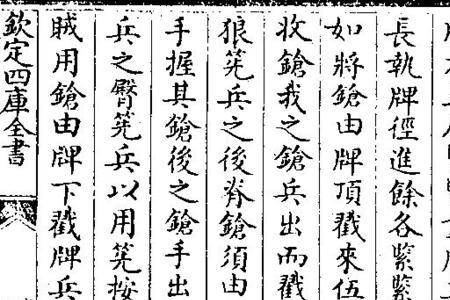 長執牌徑進餘各緊緊
如將鎗由牌頂戳來伍
收鎗我之鎗兵出而戳
狼筅兵之後脊鎗須由
手握其鎗後之鎗手出
兵之臀筅兵以用筅按
賊用鎗由牌下戳牌兵
欽定四庫全書